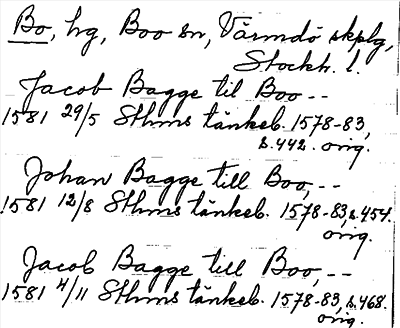 Bo, hg, Boo sn, Värmdö skplg,
Stockh. l.
Jacob Bagge til Boo --
1581 29/5 Sthms tänkeb. 1578-83,
s. 442. orig.
Johan Bagge till Boo, --
1581 12/8 Sthms tänkeb. 1578-83, s. 454.
orig.
Jacob Bagge till Boo, --
1581 4/11 Sthms tänkeb. 1578-83, s. 468.
orig.